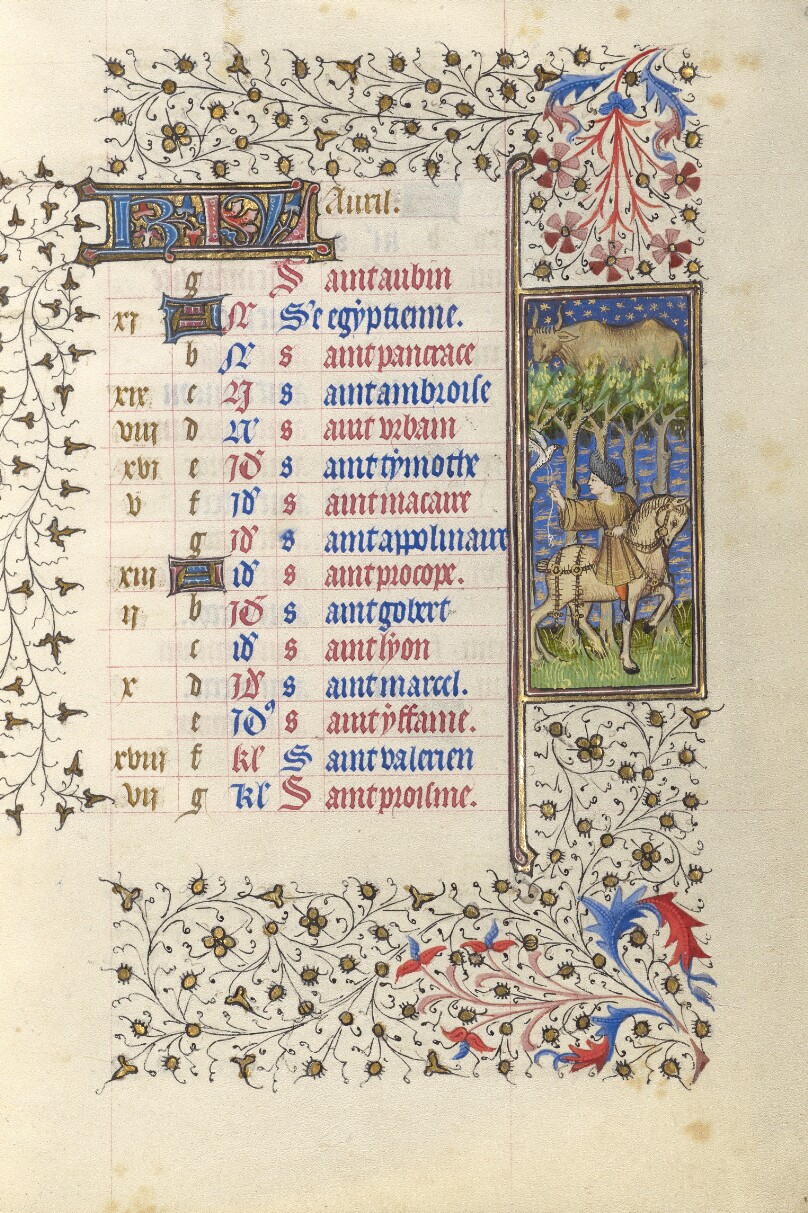 KL Auril.
g S aint aubin
xi A N Ste egyptienne.
b N s aint pancrace
xix c N s aint ambroise
viii d N s aint vrbain
xvi e Id s aint tymothe
v f id s aint macaire
g id s aint appolinaire
xiii A id s aint procope.
ii b Id s aint gobert
c id s aint lyon
x d Id s aint marcel.
e Id9 s aint yffame.
xviii f kl S aint valerien
vii g kl S aint proisme.